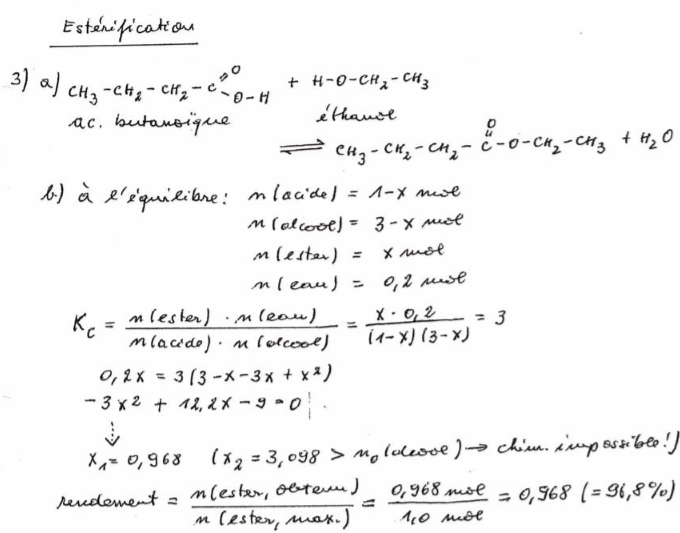 Estérification
3) a) CH3-CH2-CH2-C(=O)-O-H + H-O-CH2-CH3
ac. butanoïque éthanol
⇌ CH3-CH2-CH2-C(=O)-O-CH2-CH3 + H2O
b) à l'équilibre: n(acide) = 1-x mol
n(alcool) = 3-x mol
n(ester) = x mol
n(eau) = 0,2 mol
Kc = n(ester) · n(eau) / n(acide) · n(alcool) = x · 0,2 / (1-x)(3-x) = 3
0,2x = 3(3-x-3x+x²)
-3x² + 12,2x - 9 = 0
x1 = 0,968 (x2 = 3,098 > n0(alcool) → chim. impossible!)
rendement = n(ester, obtenu) / n(ester, max.) = 0,968 mol / 1,0 mol = 0,968 (= 96,8%)